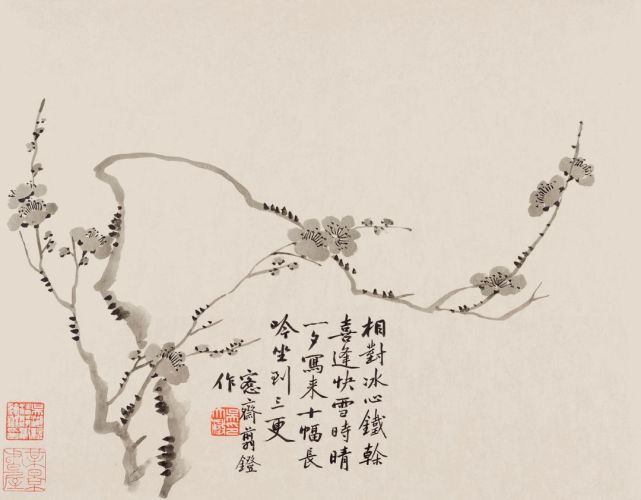 相對冰心鐵榦
喜逢快雪時晴
一夕寫来十幅長
吟坐到三更
窓齋剪鐙
作